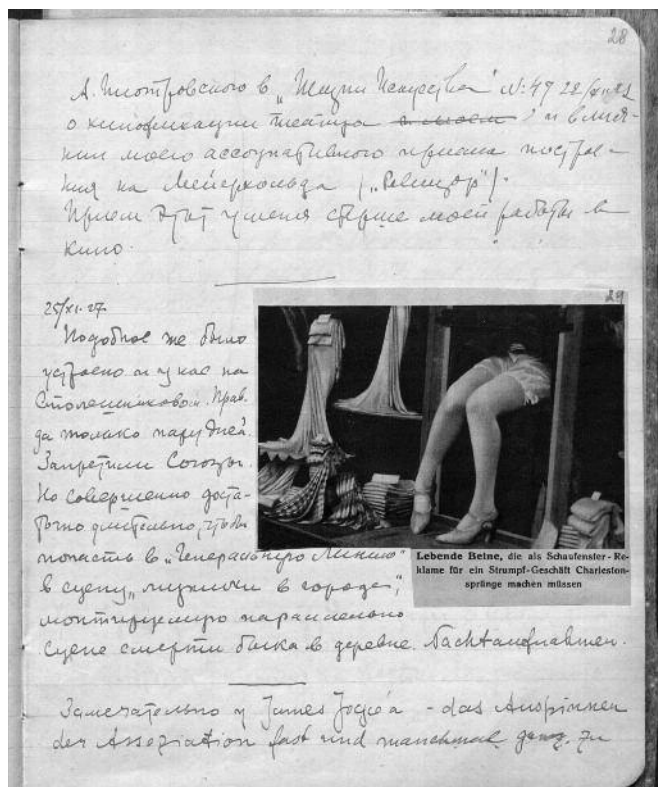 28
А. Пиотровского в „Жизни Искусства" №: 47 22/XI-27
о кинофикации театра и влия-
нии моего ассоциативного приема построе-
ния на Мейерхольда („Ревизор").
Прием этот у меня старше моей работы в
кино.
25/XI-27.
29
Подобное же было
устроено и у нас на
Столешниковом. Прав-
да только пару дней.
Запретили Союзы.
Но совершенно доста-
точно длительно, чтобы
попасть в „Генеральную Линию"
в сцену „мужички в городе",
монтируемую параллельно
сцене смерти быка в деревне. Nachtaufnahmen.
Lebende Beine, die als Schaufenster-Re-
klame für ein Strumpf-Geschäft Charleston-
sprünge machen müssen
Замечательно у James Joyce'а - das Ausspinnen
der Assoziation fast und manchmal ganz zu